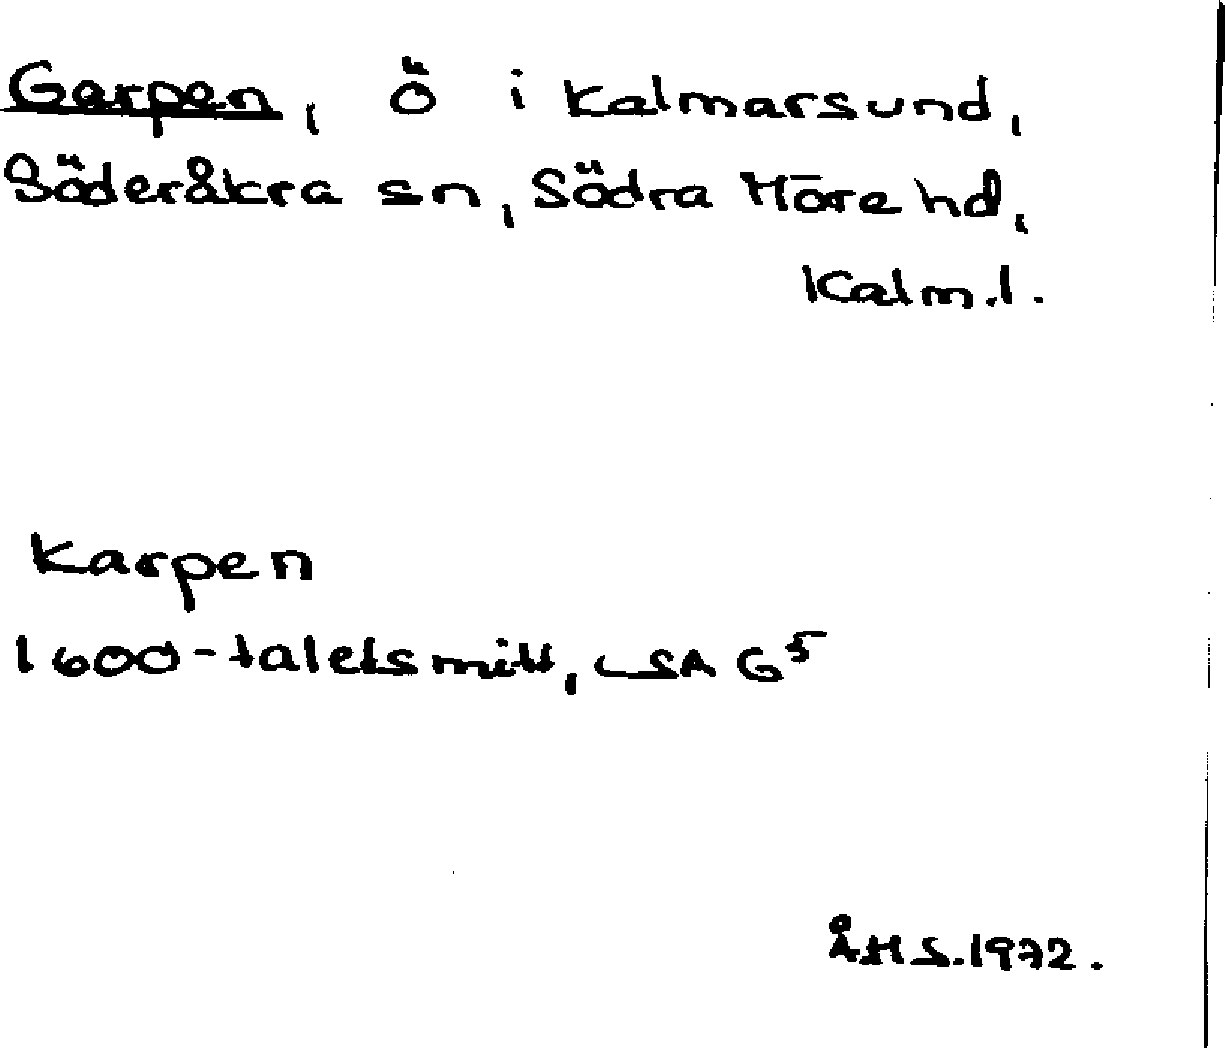 Garpen, ö i Kalmarsund,
Söderåkra sn, Södra Möre hd,
Kalm.l.
Karpen
1600-talets mitt, LSA G5
ÅHS.1972.